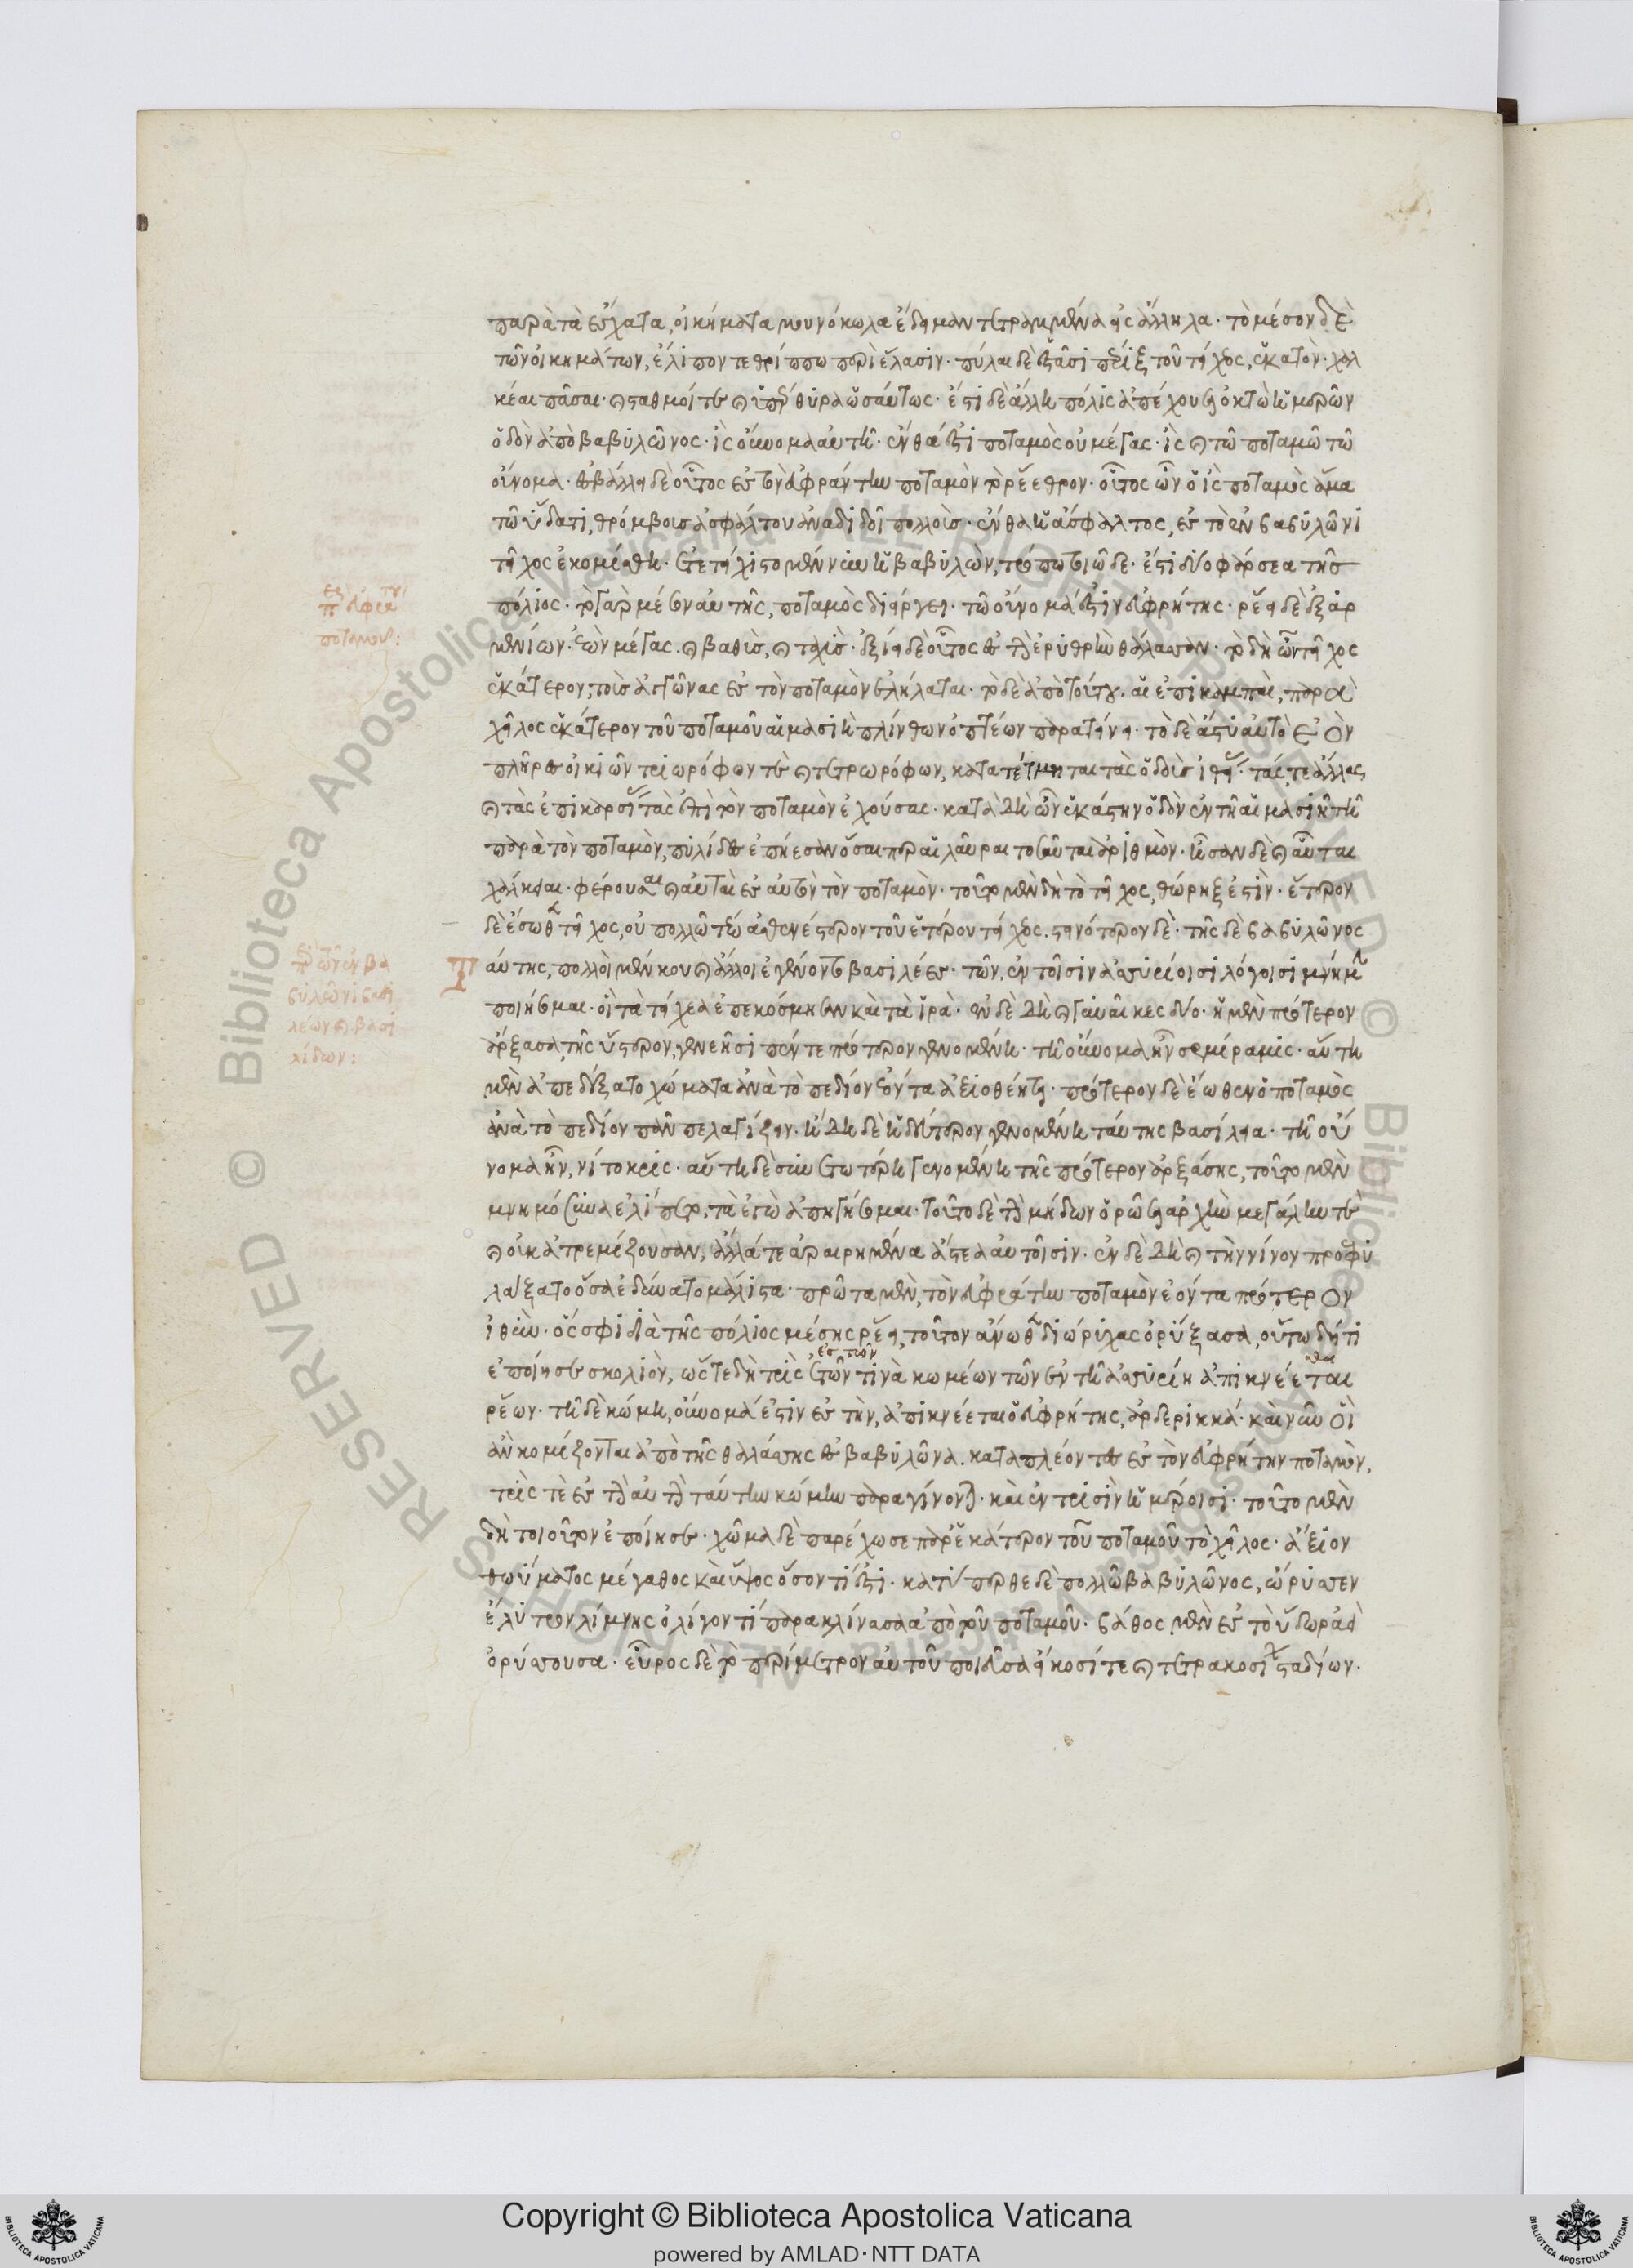 παρὰ τὰ ἔσχατα, οἰκήματα μουνόκωλα ἔδειμαν τετραμμένα εἰς ἄλληλα· τὸ μέσον δὲ
τῶν οἰκημάτων, ἔλιπον τεθρίππω περιέλασιν· πύλαι δὲ ἐνεστᾶσι πέριξ τοῦ τείχεος, ἑκατὸν· χάλ
κεαι πᾶσαι· καὶ σταθμοί τε καὶ ὑπέρθυρα ὡσαύτως· ἔστι δὲ ἄλλη πόλις ἀπέχουσα ὀκτὼ ἡμερῶν
ὁδὸν ἀπὸ βαβυλῶνος· ἲς οὔνομα αὐτῆ· ἔνθά ἐστι ποταμὸς οὐ μέγας· ἲς καὶ τῶ ποταμῶ τὸ
οὔνομα· ἐσβάλλει δὲ οὗτος ἐς τὸν εὐφρήτην ποταμὸν τὸ ῥέεθρον· οὗτος ὦν ὁ ἲς ποταμὸς ἅμα
τῶ ὕδατι, θρόμβους ἀσφάλτου ἀναδιδοῖ πολλοὺς· ἔνθα ἡ ἄσφαλτος, ἐς τὸ ἐν βαβυλῶνι
τεῖχος ἐκομίσθη· ἐτετείχιστο μέν νυν ἡ βαβυλὼν, τρόπω τοιῶδε· ἔστι δύο φάρσεα τῆς
πόλιος· τὸ γὰρ μέσον αὐτῆς, ποταμὸς διείργει· τῶ οὔνομά ἐστιν εὐφρήτης· ῥέει δὲ ἐξ ἀρ
μενίων· ἐὼν μέγας καὶ βαθὺς, καὶ ταχὺς· ἐξίει δὲ οὗτος ἐς τὴν ἐρυθρὴν θάλασσαν· τὸ δὴ ὦν τεῖχος
ἑκάτερον, τοὺς ἀγκῶνας ἐς τὸν ποταμὸν ἐλήλαται· τὸ δὲ ἀπὸ τούτου, αἱ ἐπικαμπαὶ, παρὰ
χεῖλος ἑκάτερον τοῦ ποταμοῦ αἱμασιὴ πλίνθων ὀπτέων παρατείνει· τὸ δὲ ἄστυ αὐτὸ ἐὸν
πλῆρες οἰκιῶν τριωρόφων τε καὶ τετρωρόφων, κατατέτμηται τὰς ὁδοὺς ἰθείας· τάς τε ἄλλας
καὶ τὰς ἐπικαρσίας τὰς ἐπὶ τὸν ποταμὸν ἐχούσας· κατὰ δὴ ὦν ἑκάστην ὁδὸν ἐν τῆ αἱμασιῆ τῆ
παρὰ τὸν ποταμὸν, πυλίδες ἐπῆσαν ὅσαι περ αἱ λαῦραι τοσαῦται ἀριθμὸν· ἦσαν δὲ καὶ αὗται
χάλκεαι· φέρουσαι καὶ αὐταὶ ἐς αὐτὸν τὸν ποταμὸν· τοῦτο μὲν δὴ τὸ τεῖχος, θώρηξ ἐστὶν· ἕτερον
δὲ ἔσωθεν τεῖχος, οὐ πολλῶ τέω ἀσθενέστερον τοῦ ἑτέρου τείχεος. στεινότερον δὲ· τῆς δὲ βαβυλῶνος
ταύτης, πολλοὶ μέν κου καὶ ἄλλοι ἐγένοντο βασιλέες· τῶν, ἐν τοῖσιν ἀσσυρίοισι λόγοισι μνήμην
ποιήσομαι· οἳ τὰ τείχεα ἐπεκόσμησαν καὶ τὰ ἱρὰ· ἐν δὲ δὴ καὶ γυναῖκες δύο· ἡ μὲν πρότερον
ἄρξασα, τῆς ὕστερον, γενεῆσι πέντε πρότερον γενομένη· τῆ οὔνομα ἦν σεμίραμις· αὕτη
μὲν ἀπεδέξατο χώματα ἀνὰ τὸ πεδίον ἐόντα ἀξιοθέητα· πρότερον δὲ ἐώθεεν ὁ ποταμὸς
ἀνὰ τὸ πεδίον πᾶν πελαγίζειν· ἡ δὲ δὴ δεύτερον γενομένη ταύτης βασίλεια· τῆ οὔ
νομα ἦν, νίτωκρις· αὕτη δὲ συνετωτέρη γενομένη τῆς πρότερον ἀρξάσης, τοῦτο μὲν
μνημόσυνα ἐλίπετο, τὰ ἐγὼ ἀπηγήσομαι· τοῦτο δὲ τὴν μήδων ὁρῶσα ἀρχὴν μεγάλην τε
καὶ οὐκ ἀτρεμίζουσαν, ἀλλά τε ἀραιρημένα ἄστεα αὐτοῖσιν· ἐν δὲ δὴ καὶ τὴν νίνον προεφυ
λάξατο ὅσα ἐδύνατο μάλιστα· πρῶτα μὲν, τὸν εὐφράτην ποταμὸν ἐόντα πρότερον
ἰθὺν· ὅς σφι διὰ τῆς πόλιος μέσης ῥέει, τοῦτον ἄνωθεν διώρυχας ὀρύξασα, οὕτω δή τι
ἐποίησε σκολιὸν, ὥστε δὴ τρὶς ἐς τῶν τινὰ κωμέων τῶν ἐν τῆ ἀσσυρίη ἀπικνέεται
ῥέων· τῆ δὲ κώμη, οὔνομά ἐστιν ἐς τὴν, ἀπικνέεται ὁ εὐφρήτης, ἀρδέρικκα· καὶ νῦν οἳ
ἂν κομίζονται ἀπὸ τῆς θαλάσσης ἐς βαβυλῶνα. καταπλέοντες ἐς τὸν εὐφρήτην ποταμὸν,
τρίς τε ἐς τὴν αὐτὴν ταύτην κώμην παραγίνονται· καὶ ἐν τρισὶν ἡμέρησι· τοῦτο μὲν
δὴ τοιοῦτον ἐποίησε· χῶμα δὲ παρέχωσε παρ' ἑκάτερον τοῦ ποταμοῦ τὸ χεῖλος· ἄξιον
θωύματος μέγαθος καὶ ὕψος ὅσον τι ἐστι· κατύπερθε δὲ πολλῶ βαβυλῶνος, ὤρυσσεν
ἔλυτρον λίμνης ὀλίγον τι παρακλίνασα ἀπὸ τοῦ ποταμοῦ· βάθος μὲν ἐς τὸ ὕδωρ ἀεὶ
ὀρύσσουσα· εὖρος δὲ τὸ περίμετρον αὐτοῦ ποιεῦσα εἴκοσί τε καὶ τετρακοσίων σταδίων·
ποταμοῦ:
Copyright © Biblioteca Apostolica Vaticana
powered by AMLAD·NTT DATA